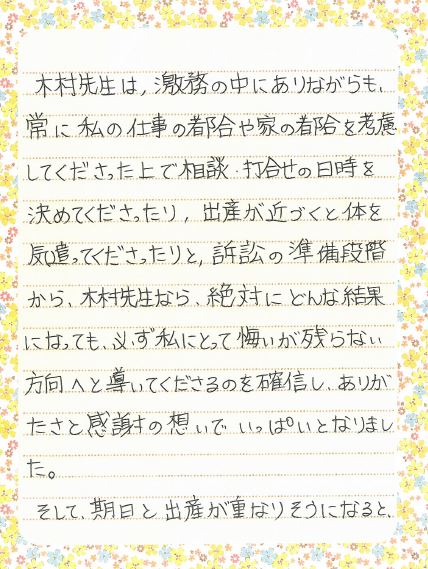 木村先生は、激務の中にありながらも、
常に私の仕事の都合や家の都合を考慮
してくださった上で相談・打合せの日時を
決めてくださったり、出産が近づくと体を
気遣ってくださったりと、訴訟の準備段階
から、木村先生なら、絶対にどんな結果
になっても、必ず私にとって悔いが残らない
方向へと導いてくださるのを確信し、ありが
たさと感謝の想いでいっぱいとなりまし
た。
そして、期日と出産が重なりそうになると、